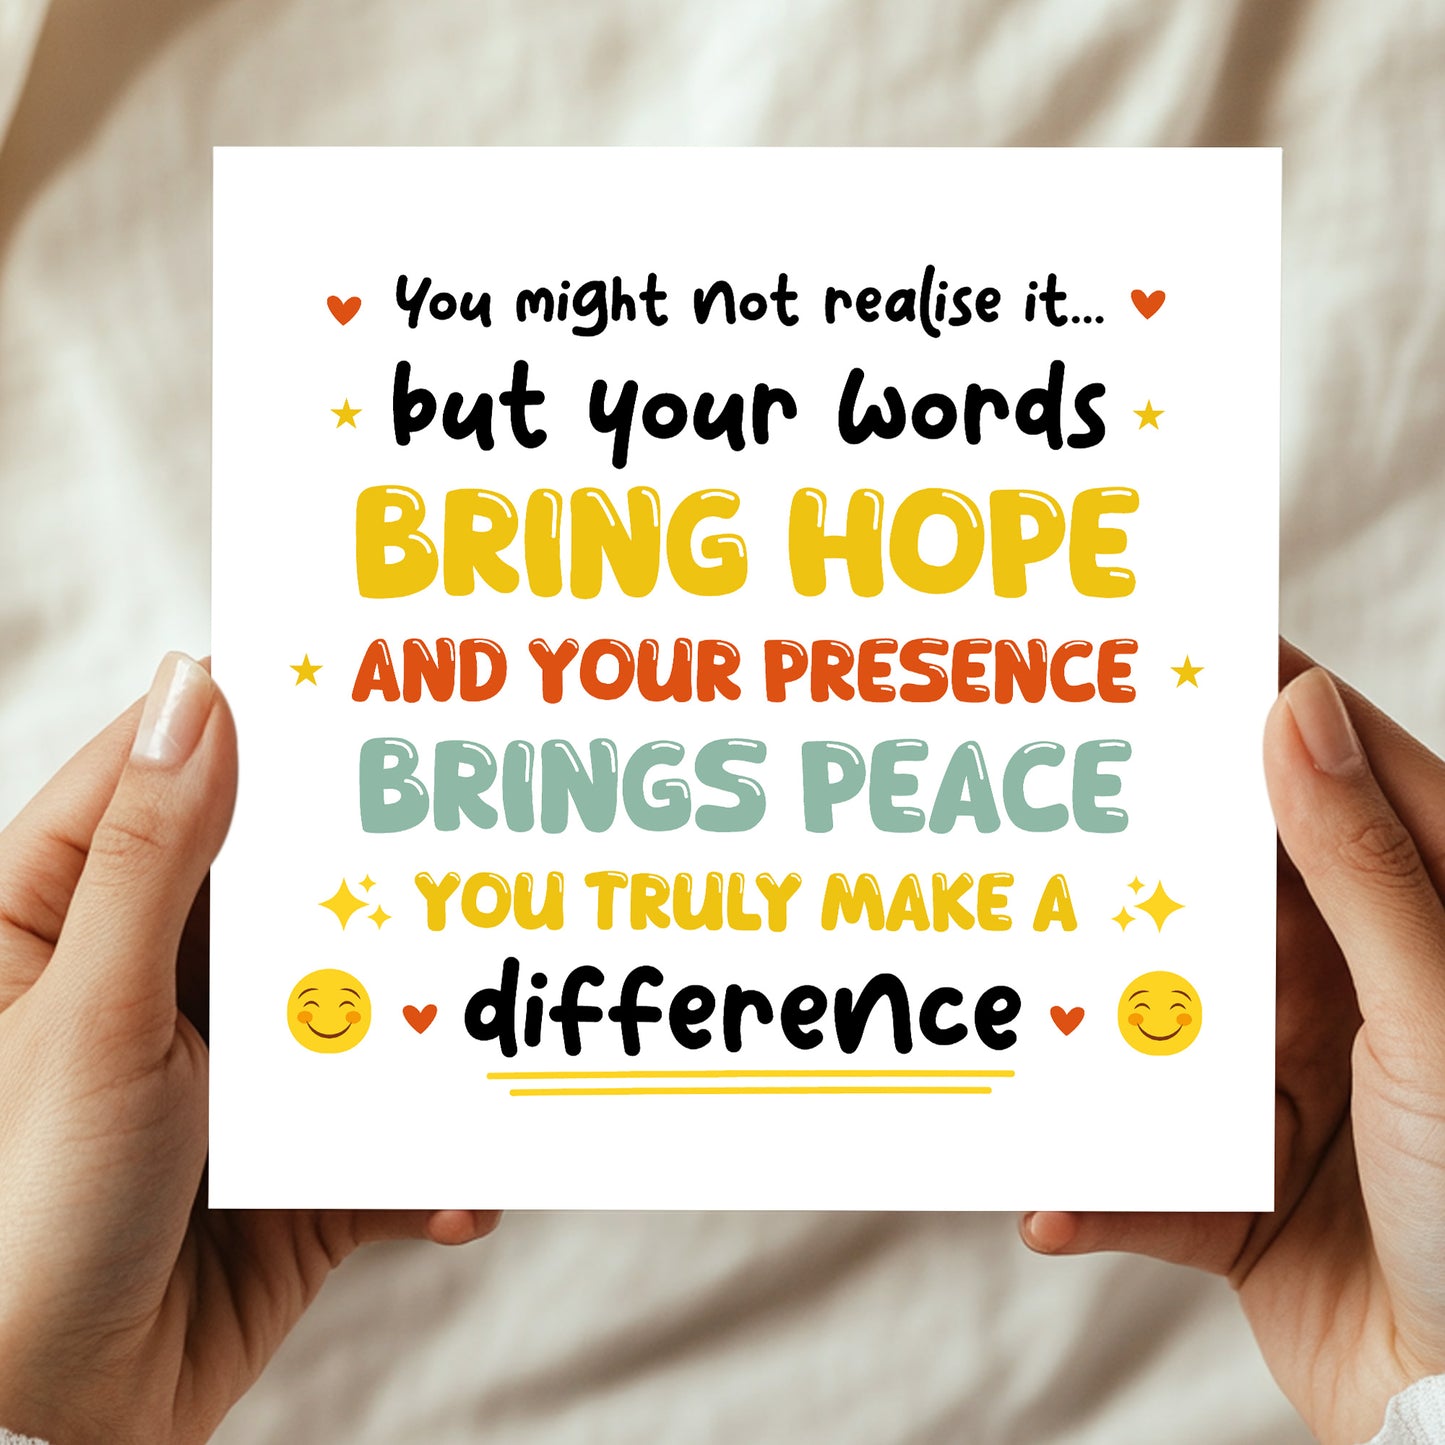 You might not realise it...
but your words
BRING HOPE
AND YOUR PRESENCE
BRINGS PEACE
YOU TRULY MAKE A
difference